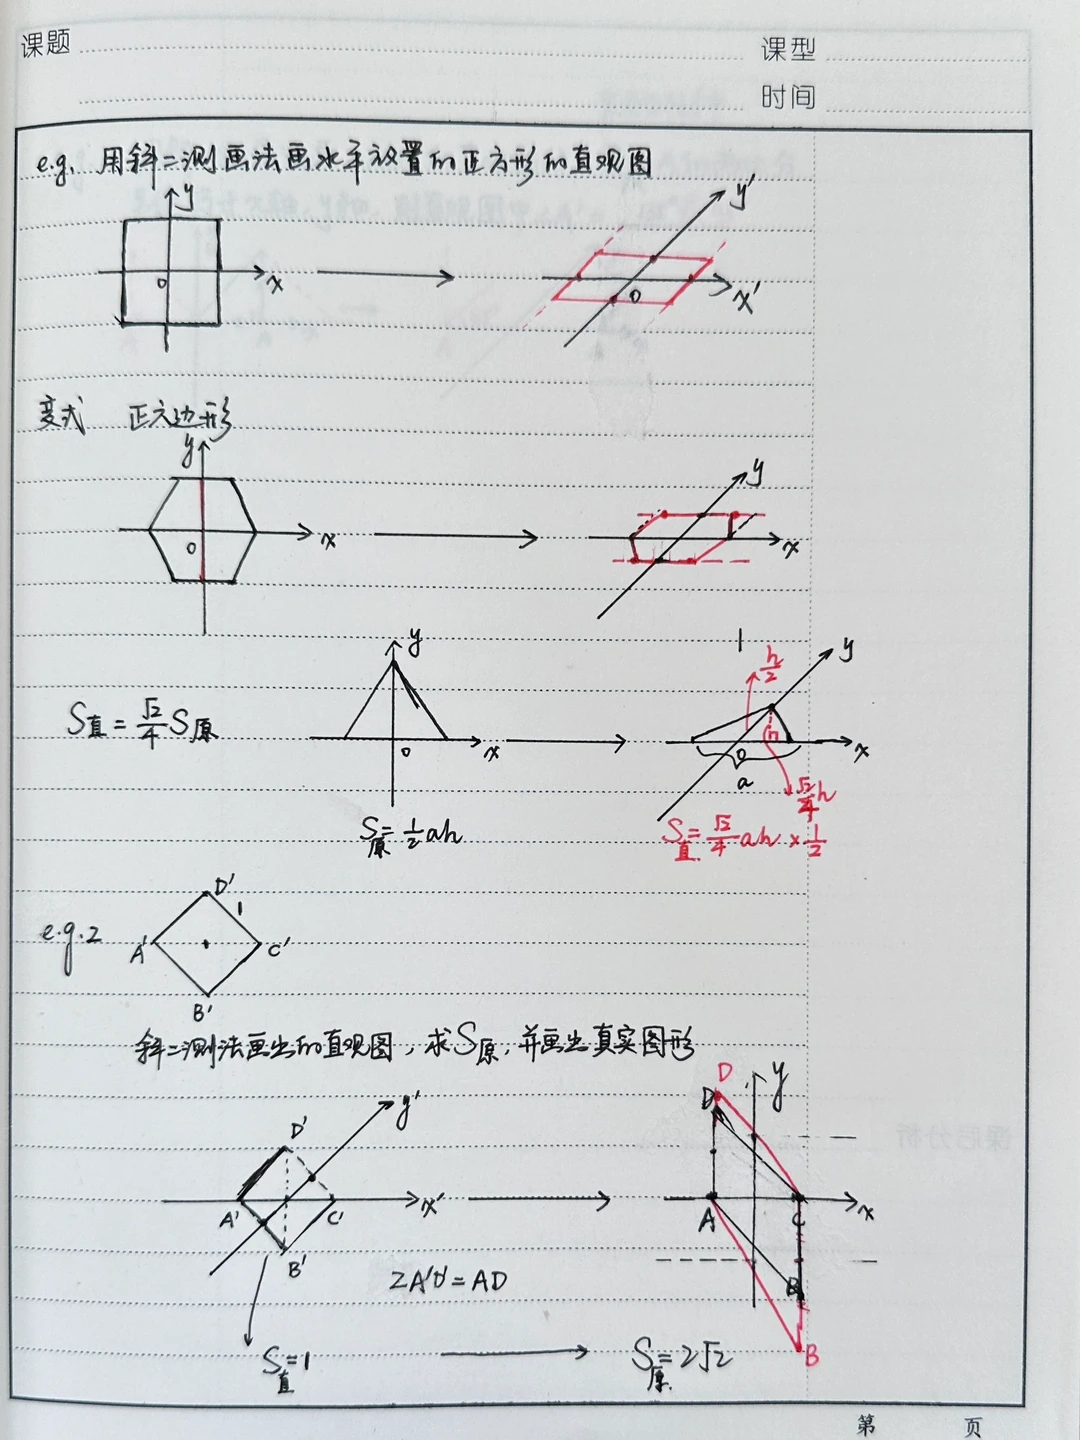 课题
课型
时间
e.g. 用斜二测画法画水平放置的正方形的直观图
y
O
x
y′
O
x′
变式 正六边形
y
O
x
y
x
S直=√2/4 S原
y
O
x
S原=1/2 ah
h/2
y
h
O
x
a
√2/4 h
S直=√2/4 ah×1/2
e.g.2
D′
1
A′
C′
B′
斜二测法画出的直观图，求S原，并画出真实图形
D′
y′
A′
C′
x′
B′
2A′D′=AD
S直=1
D
D
y
A
C
x
B
B
S原=2√2
第 页